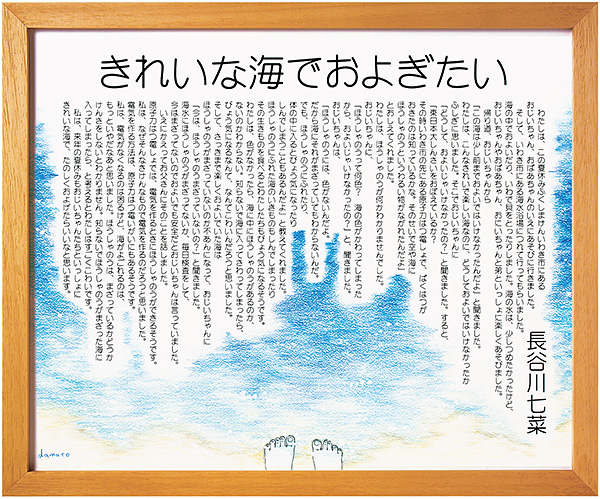 きれいな海でおよぎたい
長谷川七菜
わたしは、この夏休みふくしまけんいわき市にある
おじいちゃん、おばあちゃんの家にあそびに行きました。
そして、いわき市にある海水浴場につれて行ってもらいました。
海の中でおよいだり、いわで貝をとったりしました。海の水は、少しつめたかったけど、
おじいちゃんやおばあちゃん、おにいちゃんと弟といっしょに楽しくあそびました。
帰り道、おじいちゃんから
「この海は少し前までおよいではいけなかったんだよ」と聞きました。
わたしは、こんなきれいで楽しい海なのに、どうしておよいではいけなかったか
ふしぎに思いました。そこでおじいちゃんに
「どうして、およいじゃいけなかったの？」と聞きました。すると、
「東日本大しんさいをおぼえているかな。
その時いわき市の先にある原子力はつ電しょで、ばくはつが
おきたのは知っているかな。そのせいで空や海に
ほうしゃのうというわるい物がながれたんだよ」
とおしえてくれました。
わたしは、ほうしゃのうが何かわかりませんでした。
おじいちゃんに、
「ほうしゃのうって何色？　海の色がかわってしまった
から、およいじゃいけなかったの？」と、聞きました。
おじいちゃんは、
「ほうしゃのうには、色がないんだよ。
だから海にそれがまざっていてもわからないんだ。
でも、ほうしゃのうにふれたり、
体の中に入るとびょう気になったり
しんでしまうこともあるんだよ」と教えてくれました。
ほうしゃのうにふれた海のいきものもしんでしまったり
その生きものを食べるとわたしたちもびょう気になるそうです。
わたしは、色がなかったら、海に中にほうしゃのうがあるのか
ないのかわからないし、知らない間に体の中に入ってきてしまったら、
びょう気になるなんて、なんてこわいんだろうと思いました。
そして、さっきまで楽しくおよいでいた海は
ほうしゃのうがまざっていないのか不あんになって、おじいちゃんに
「今は、ほうしゃのうはまざっていないの？」と聞きました。
海水にほうしゃのうがまざってないか、毎日検査をして、
今はまざってないのでおよいでも安全だとおじいちゃんは言っていました。
いえにかえってお父さんにそのことを話しました。
原子力はつ電しょでは、電気を作るときにほうしゃのうができるそうです。
私は、なぜそんなきけんなもので電気を作るのだろうと思いました。
電気を作る方法は、原子力はつ電いがいにもあるそうです。
私は、電気がなくなるのは困るけど、海がよごれるのは、
もっといやだなあと思いました。ほうしゃのうは、まざっているかどうか
けんさをしないとわかりません。知らないでほうしゃのうがまざった海に
入ってしまったら、と考えるとわたしはすごくこわいです。
私は、来年の夏休みもおじいちゃんたちといっしょに
きれいな海で、たのしくおよげたらいいなと思います。
damaro